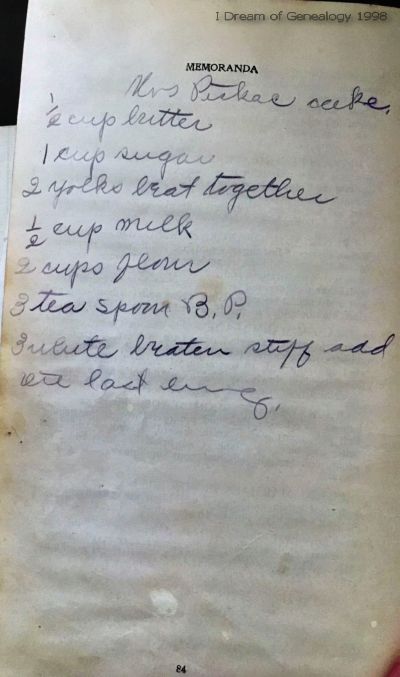 I Dream of Genealogy 1998
MEMORANDA
Mrs cake.
1/2 cup butter
1 cup sugar
2 yolks beat together
1/2 cup milk
2 cups flour
3 tea spoon B. P.
3 white beaten stiff add
last
84